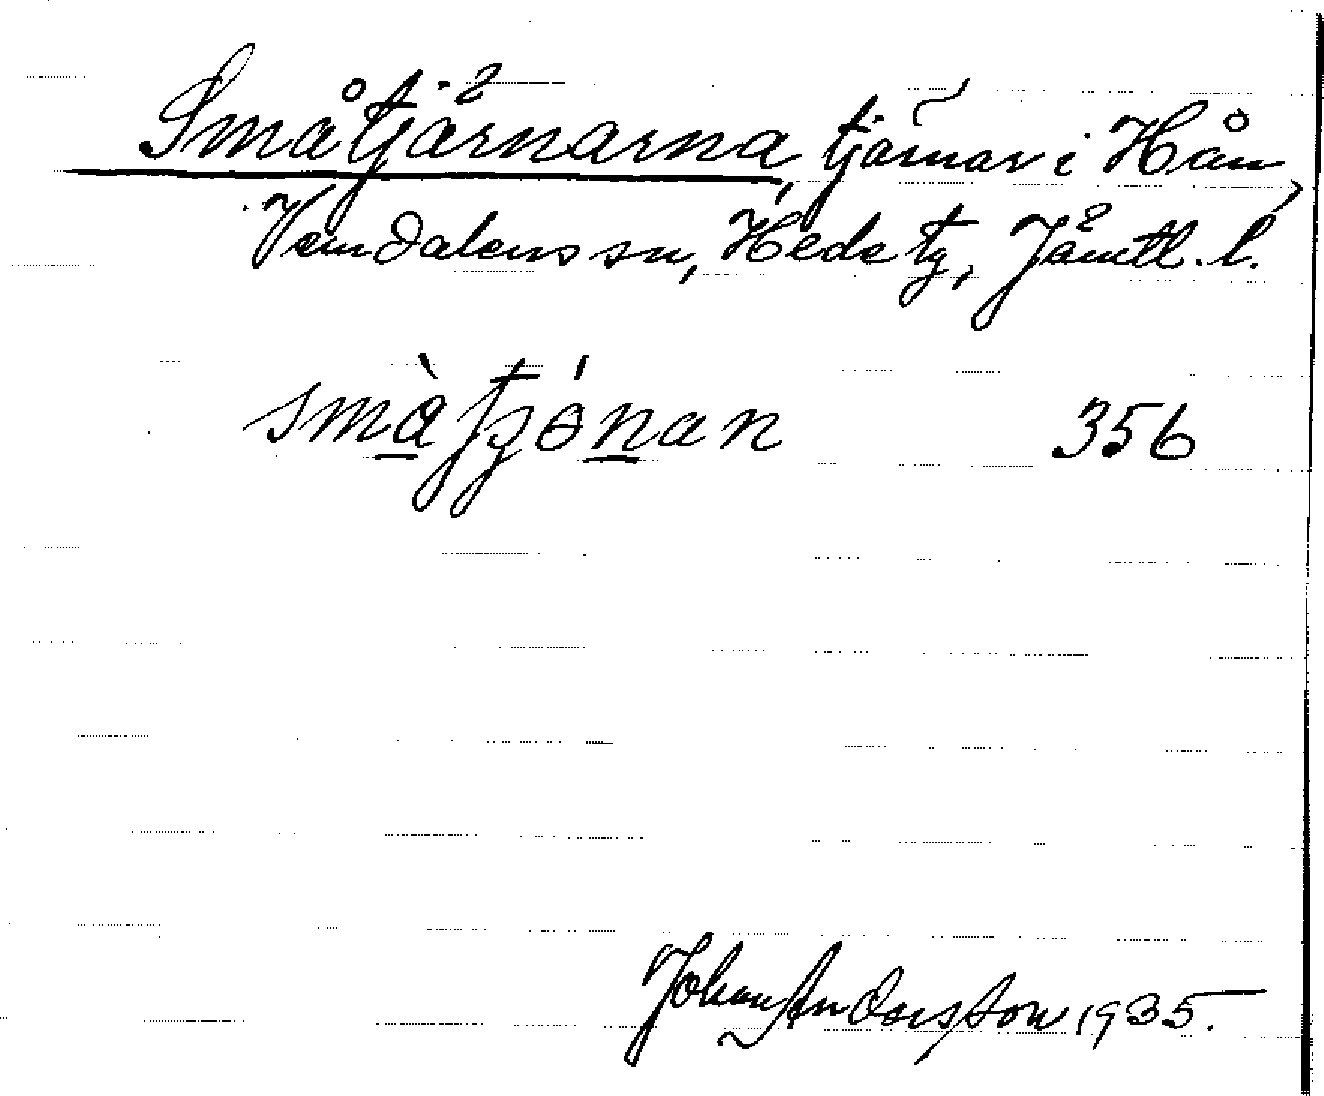 Småtjärnarna, tjärnar i Hån,
Vemdalens sn, Hede tg, Jämtl. l.
småtjönan 356
Johan Andersson 1935.